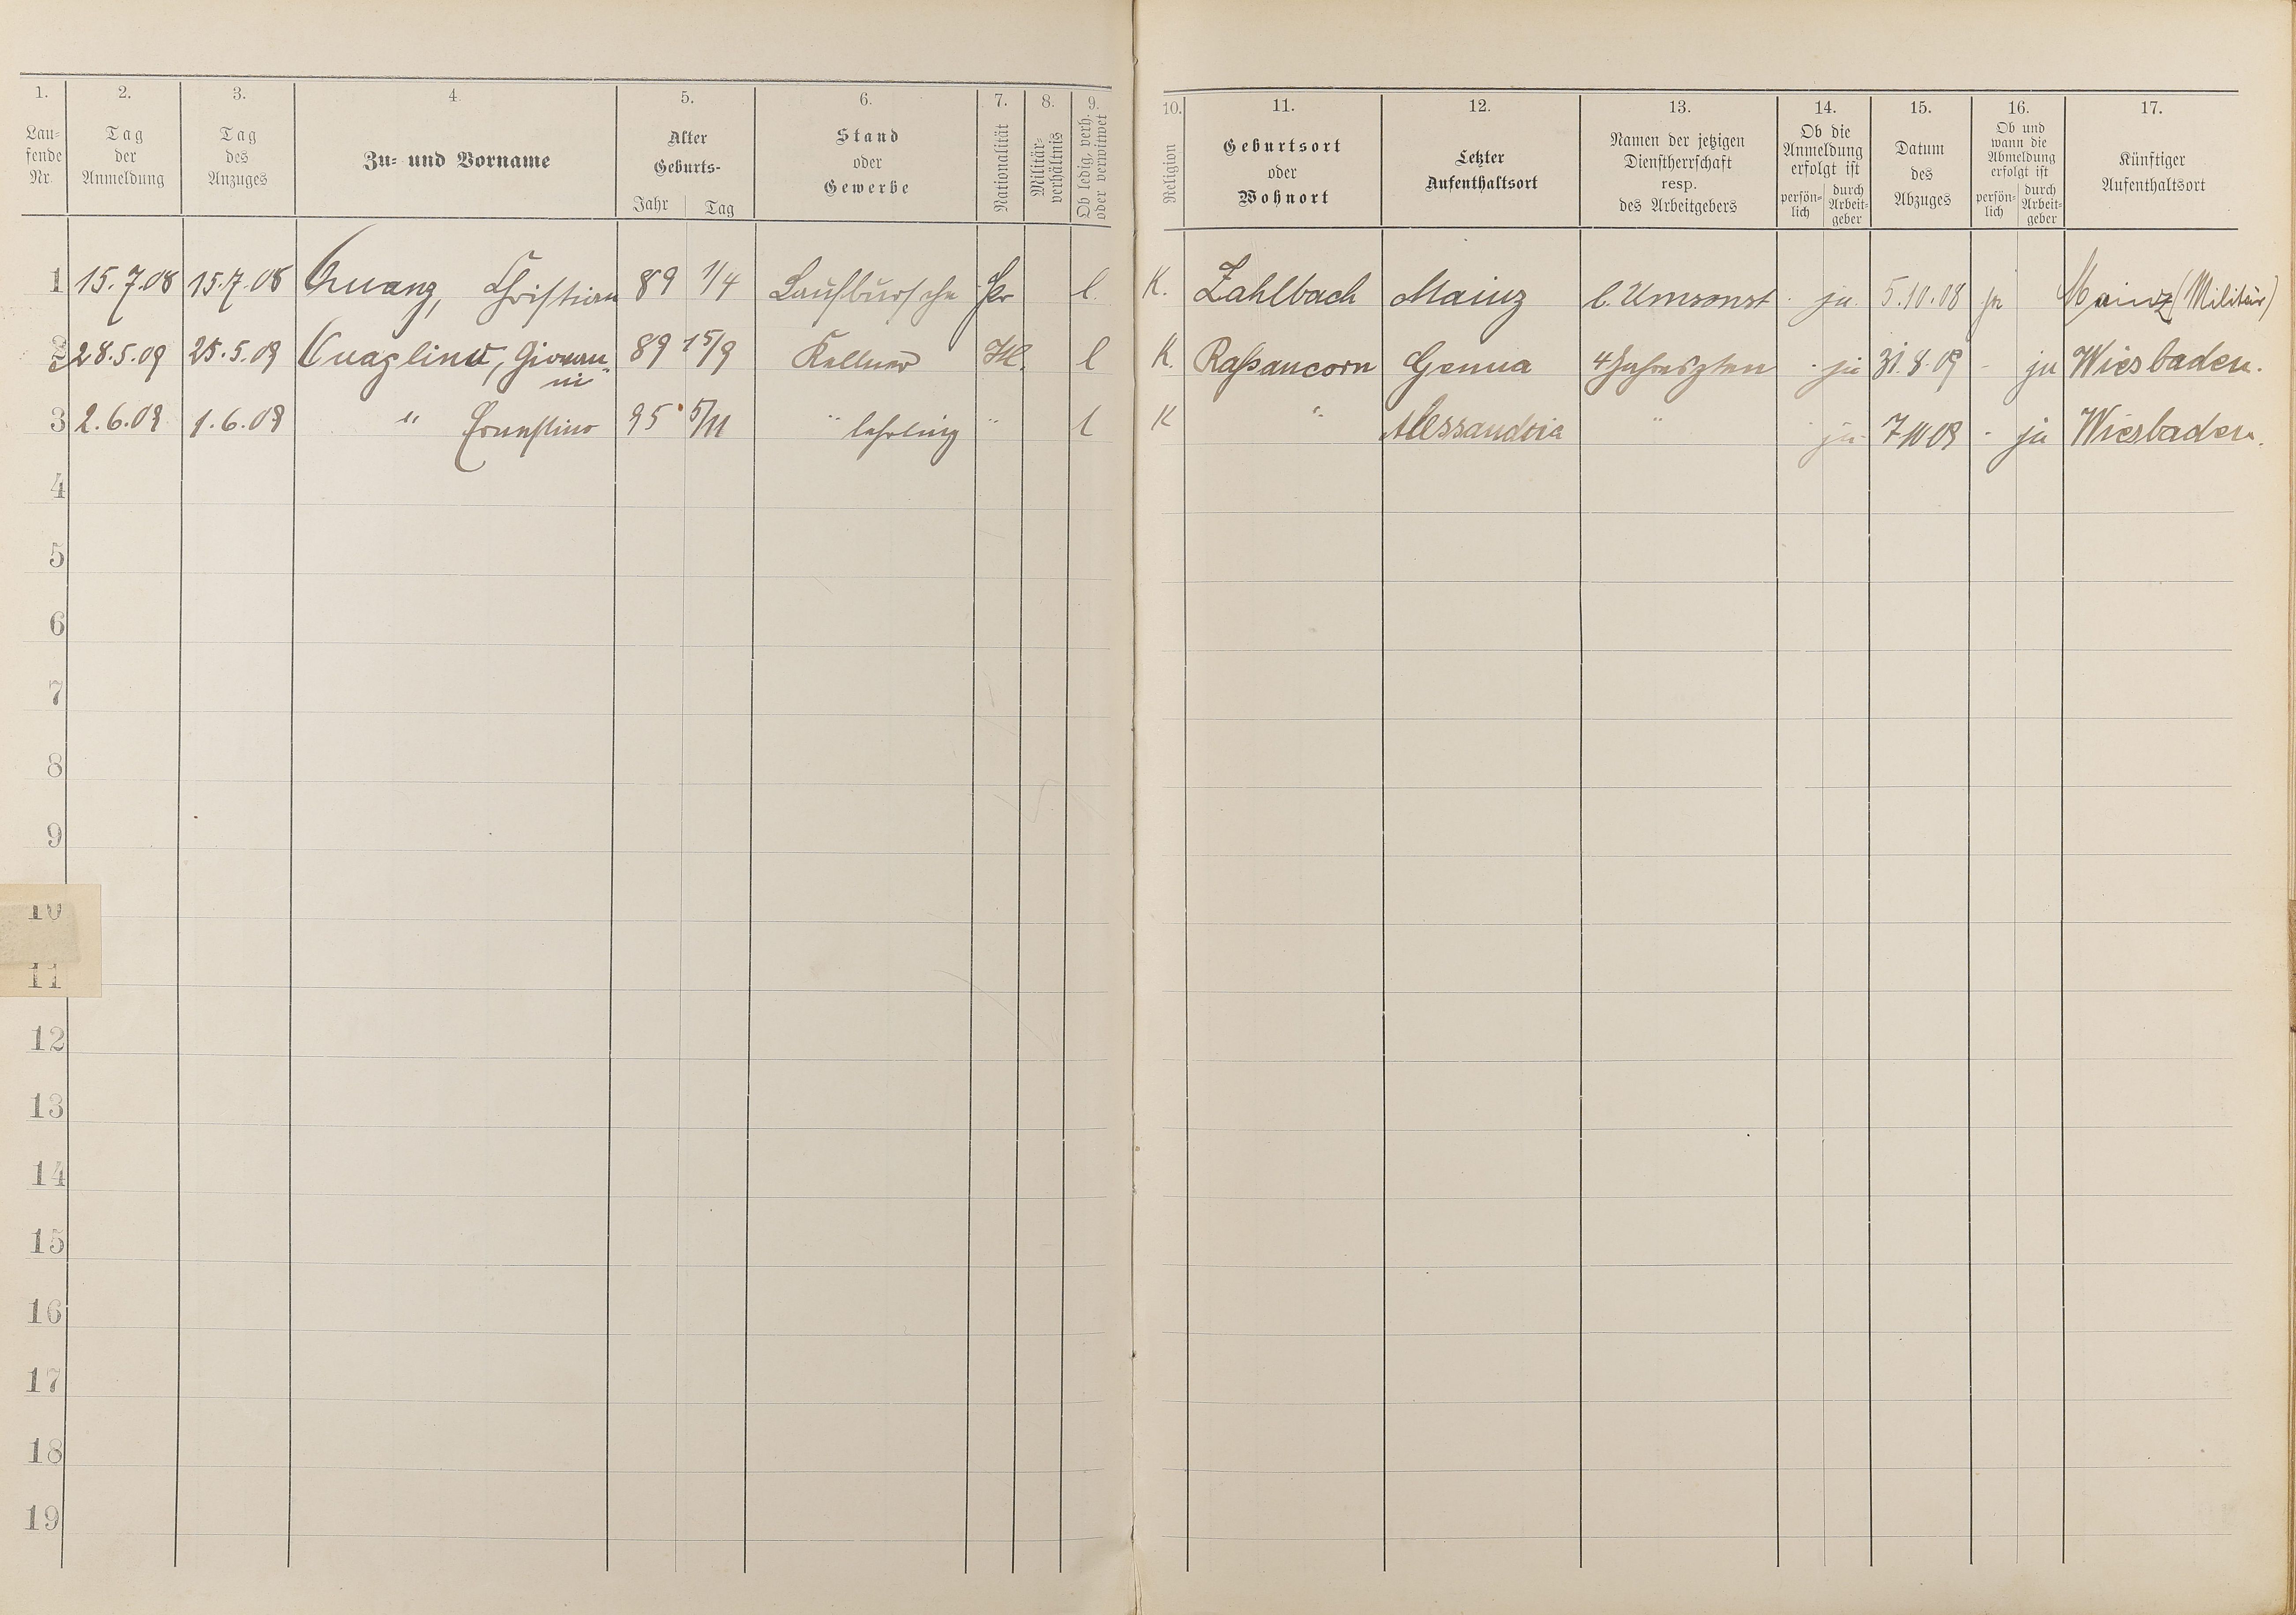 1. 2. 3. 4. 5. 6. 7. 8. 9. 10. 11. 12. 13. 14. 15. 16. 17.
Lau-
fende
Nr.
Tag
der
Anmeldung
Tag
des
Anzuges
Zu- und Vorname
Alter
Geburts-
Jahr Tag
Stand
oder
Gewerbe
Nationalität
Militär-
verhältnis
Ob ledig, verh.
oder verwitwet
Religion
Geburtsort
oder
Wohnort
Letzter
Aufenthaltsort
Namen der jetzigen
Dienstherrschaft
resp.
des Arbeitgebers
Ob die
Anmeldung
erfolgt ist
persön-
lich
durch
Arbeit-
geber
Datum
des
Abzuges
Ob und
wann die
Abmeldung
erfolgt ist
persön-
lich
durch
Arbeit-
geber
Künftiger
Aufenthaltsort
1 15.7.08 15.7.08 Quanz, Christian 89 1/4 Laufbursche l. K. Zahlbach Mainz C. Umsonst · ja 5.10.08 ja Mainz (Militär)
2 28.5.09 25.5.09 Quaglino, Giovan-
ni 89 15/9 Kellner Itl. l K. Raßancorn Genua 4 Jahreszten · ja 31.8.09 - ja Wiesbaden.
3 2.6.09 1.6.09 " Ernestino 95 5/11 " lehrling " l K " Alessandria " · ja 7.10.09 - ja Wiesbaden.
4
5
6
7
8
9
10
11
12
13
14
15
16
17
18
19